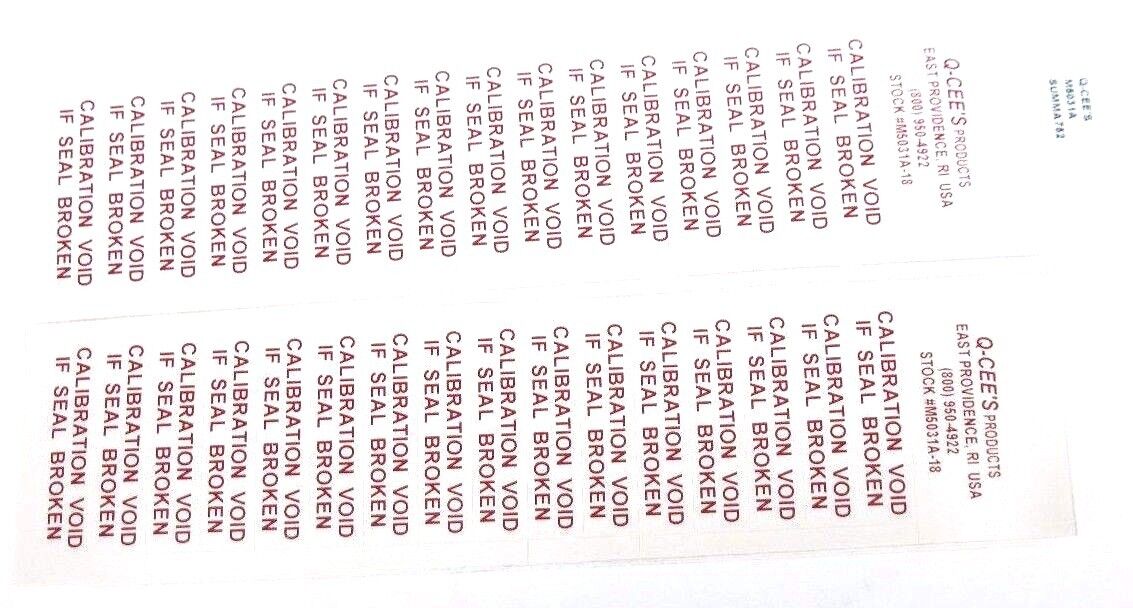 Q.CEE'S
M5031A
SUMMA
Q-CEE'S PRODUCTS
EAST PROVIDENCE, RI USA
(800) 950-4922
STOCK #M5031A-18
CALIBRATION VOID
IF SEAL BROKEN
CALIBRATION VOID
IF SEAL BROKEN
CALIBRATION VOID
IF SEAL BROKEN
CALIBRATION VOID
IF SEAL BROKEN
CALIBRATION VOID
IF SEAL BROKEN
CALIBRATION VOID
IF SEAL BROKEN
CALIBRATION VOID
IF SEAL BROKEN
CALIBRATION VOID
IF SEAL BROKEN
CALIBRATION VOID
IF SEAL BROKEN
CALIBRATION VOID
IF SEAL BROKEN
CALIBRATION VOID
IF SEAL BROKEN
CALIBRATION VOID
IF SEAL BROKEN
CALIBRATION VOID
IF SEAL BROKEN
CALIBRATION VOID
IF SEAL BROKEN
CALIBRATION VOID
IF SEAL BROKEN
CALIBRATION VOID
IF SEAL BROKEN
Q-CEE'S PRODUCTS
EAST PROVIDENCE, RI USA
(800) 950-4922
STOCK #M5031A-18
CALIBRATION VOID
IF SEAL BROKEN
CALIBRATION VOID
IF SEAL BROKEN
CALIBRATION VOID
IF SEAL BROKEN
CALIBRATION VOID
IF SEAL BROKEN
CALIBRATION VOID
IF SEAL BROKEN
CALIBRATION VOID
IF SEAL BROKEN
CALIBRATION VOID
IF SEAL BROKEN
CALIBRATION VOID
IF SEAL BROKEN
CALIBRATION VOID
IF SEAL BROKEN
CALIBRATION VOID
IF SEAL BROKEN
CALIBRATION VOID
IF SEAL BROKEN
CALIBRATION VOID
IF SEAL BROKEN
CALIBRATION VOID
IF SEAL BROKEN
CALIBRATION VOID
IF SEAL BROKEN
CALIBRATION VOID
IF SEAL BROKEN
CALIBRATION VOID
IF SEAL BROKEN